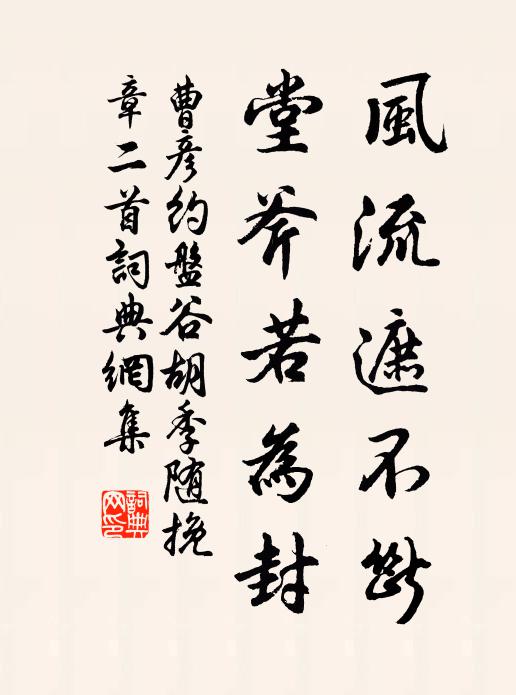 風流遮不斷
堂斧若為封
曹彦約盤谷胡季随挽
章二首詞典網集
詞典
网印